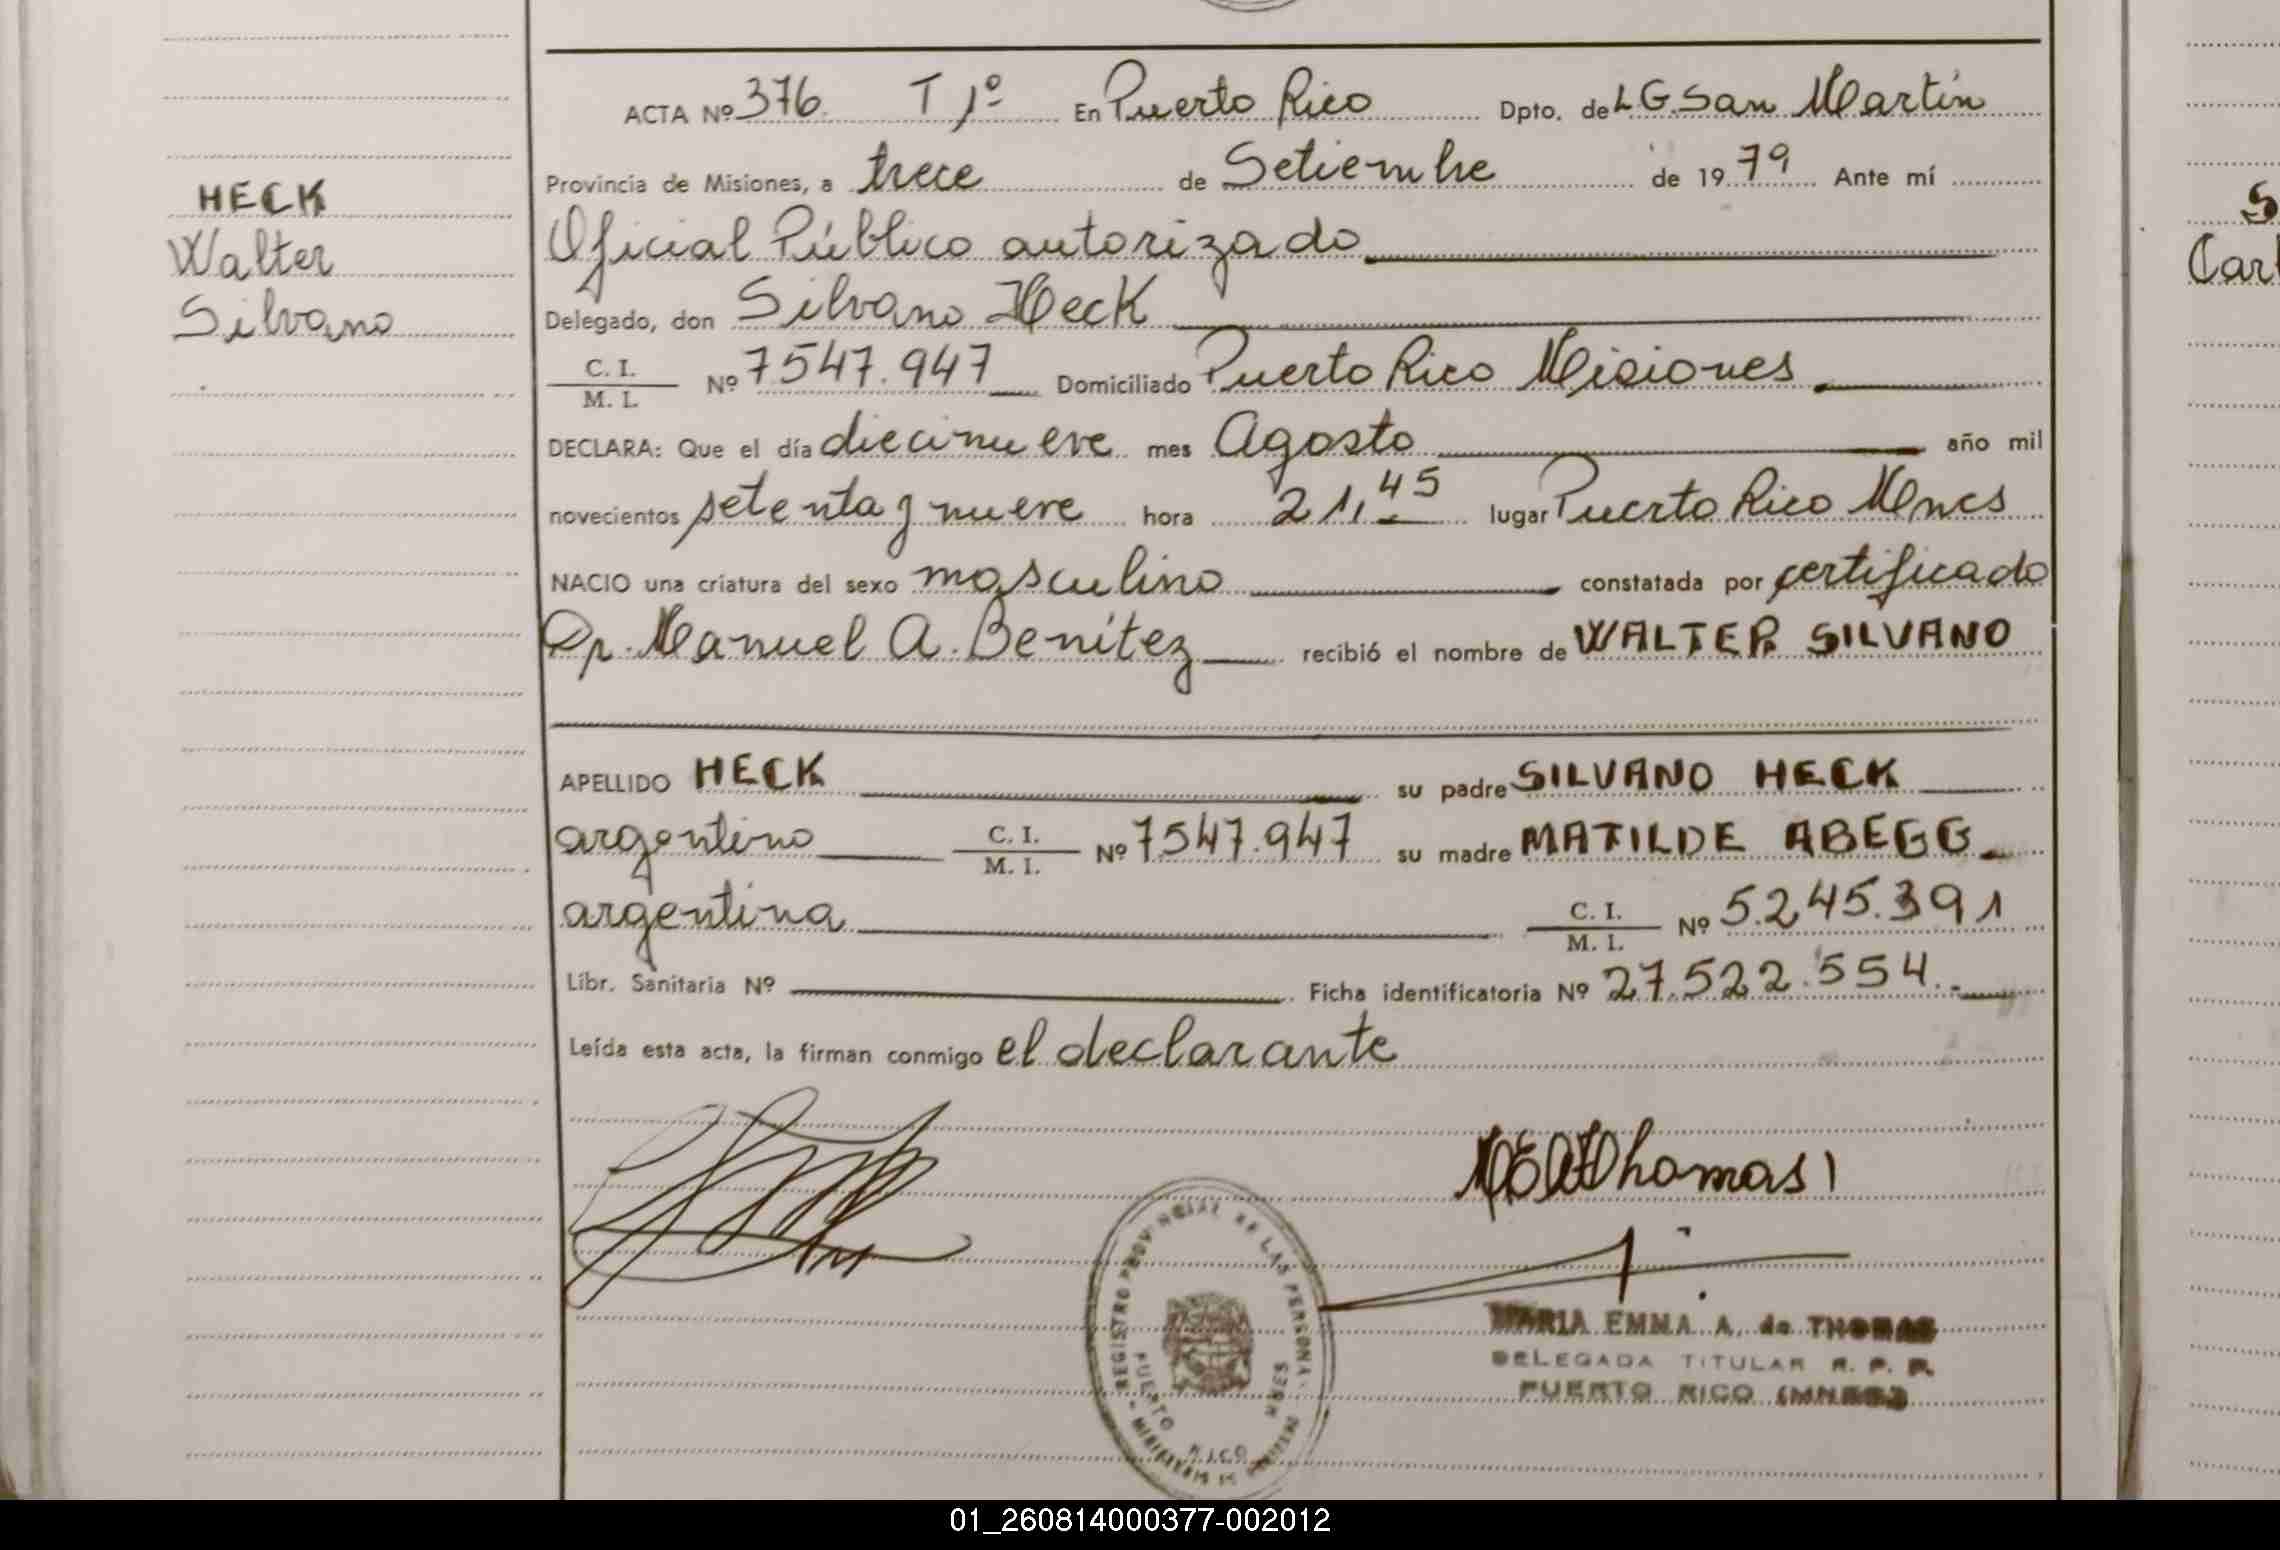 HECK
Walter
Silvano
ACTA Nº 376. T 1º En Puerto Rico Dpto. de L G. San Martín
Provincia de Misiones, a trece de Setiembre de 1979 Ante mí
Oficial Público autorizado
Delegado, don Silvano Heck
C. I.
M. I.
Nº 7547.947 Domiciliado Puerto Rico Misiones.
DECLARA: Que el día diecinueve mes Agosto año mil
novecientos setenta y nueve hora 21,45 lugar Puerto Rico Mnes
NACIO una criatura del sexo masculino constatada por certificado
Dr. Manuel A. Benítez recibió el nombre de WALTER SILVANO
APELLIDO HECK su padre SILVANO HECK
argentino C. I. M. I. Nº 7547.947 su madre MATILDE ABEGG
argentina C. I. M. I. Nº 5.245.391
Libr. Sanitaria Nº Ficha identificatoria Nº 27.522.554.
Leída esta acta, la firman conmigo el declarante
REGISTRO PROVINCIAL DE LAS PERSONAS
PUERTO RICO MNES
MARIA EMMA A. de THOMAS
DELEGADA TITULAR R. P. P.
PUERTO RICO (MNES)
S
Carl
01_260814000377-002012